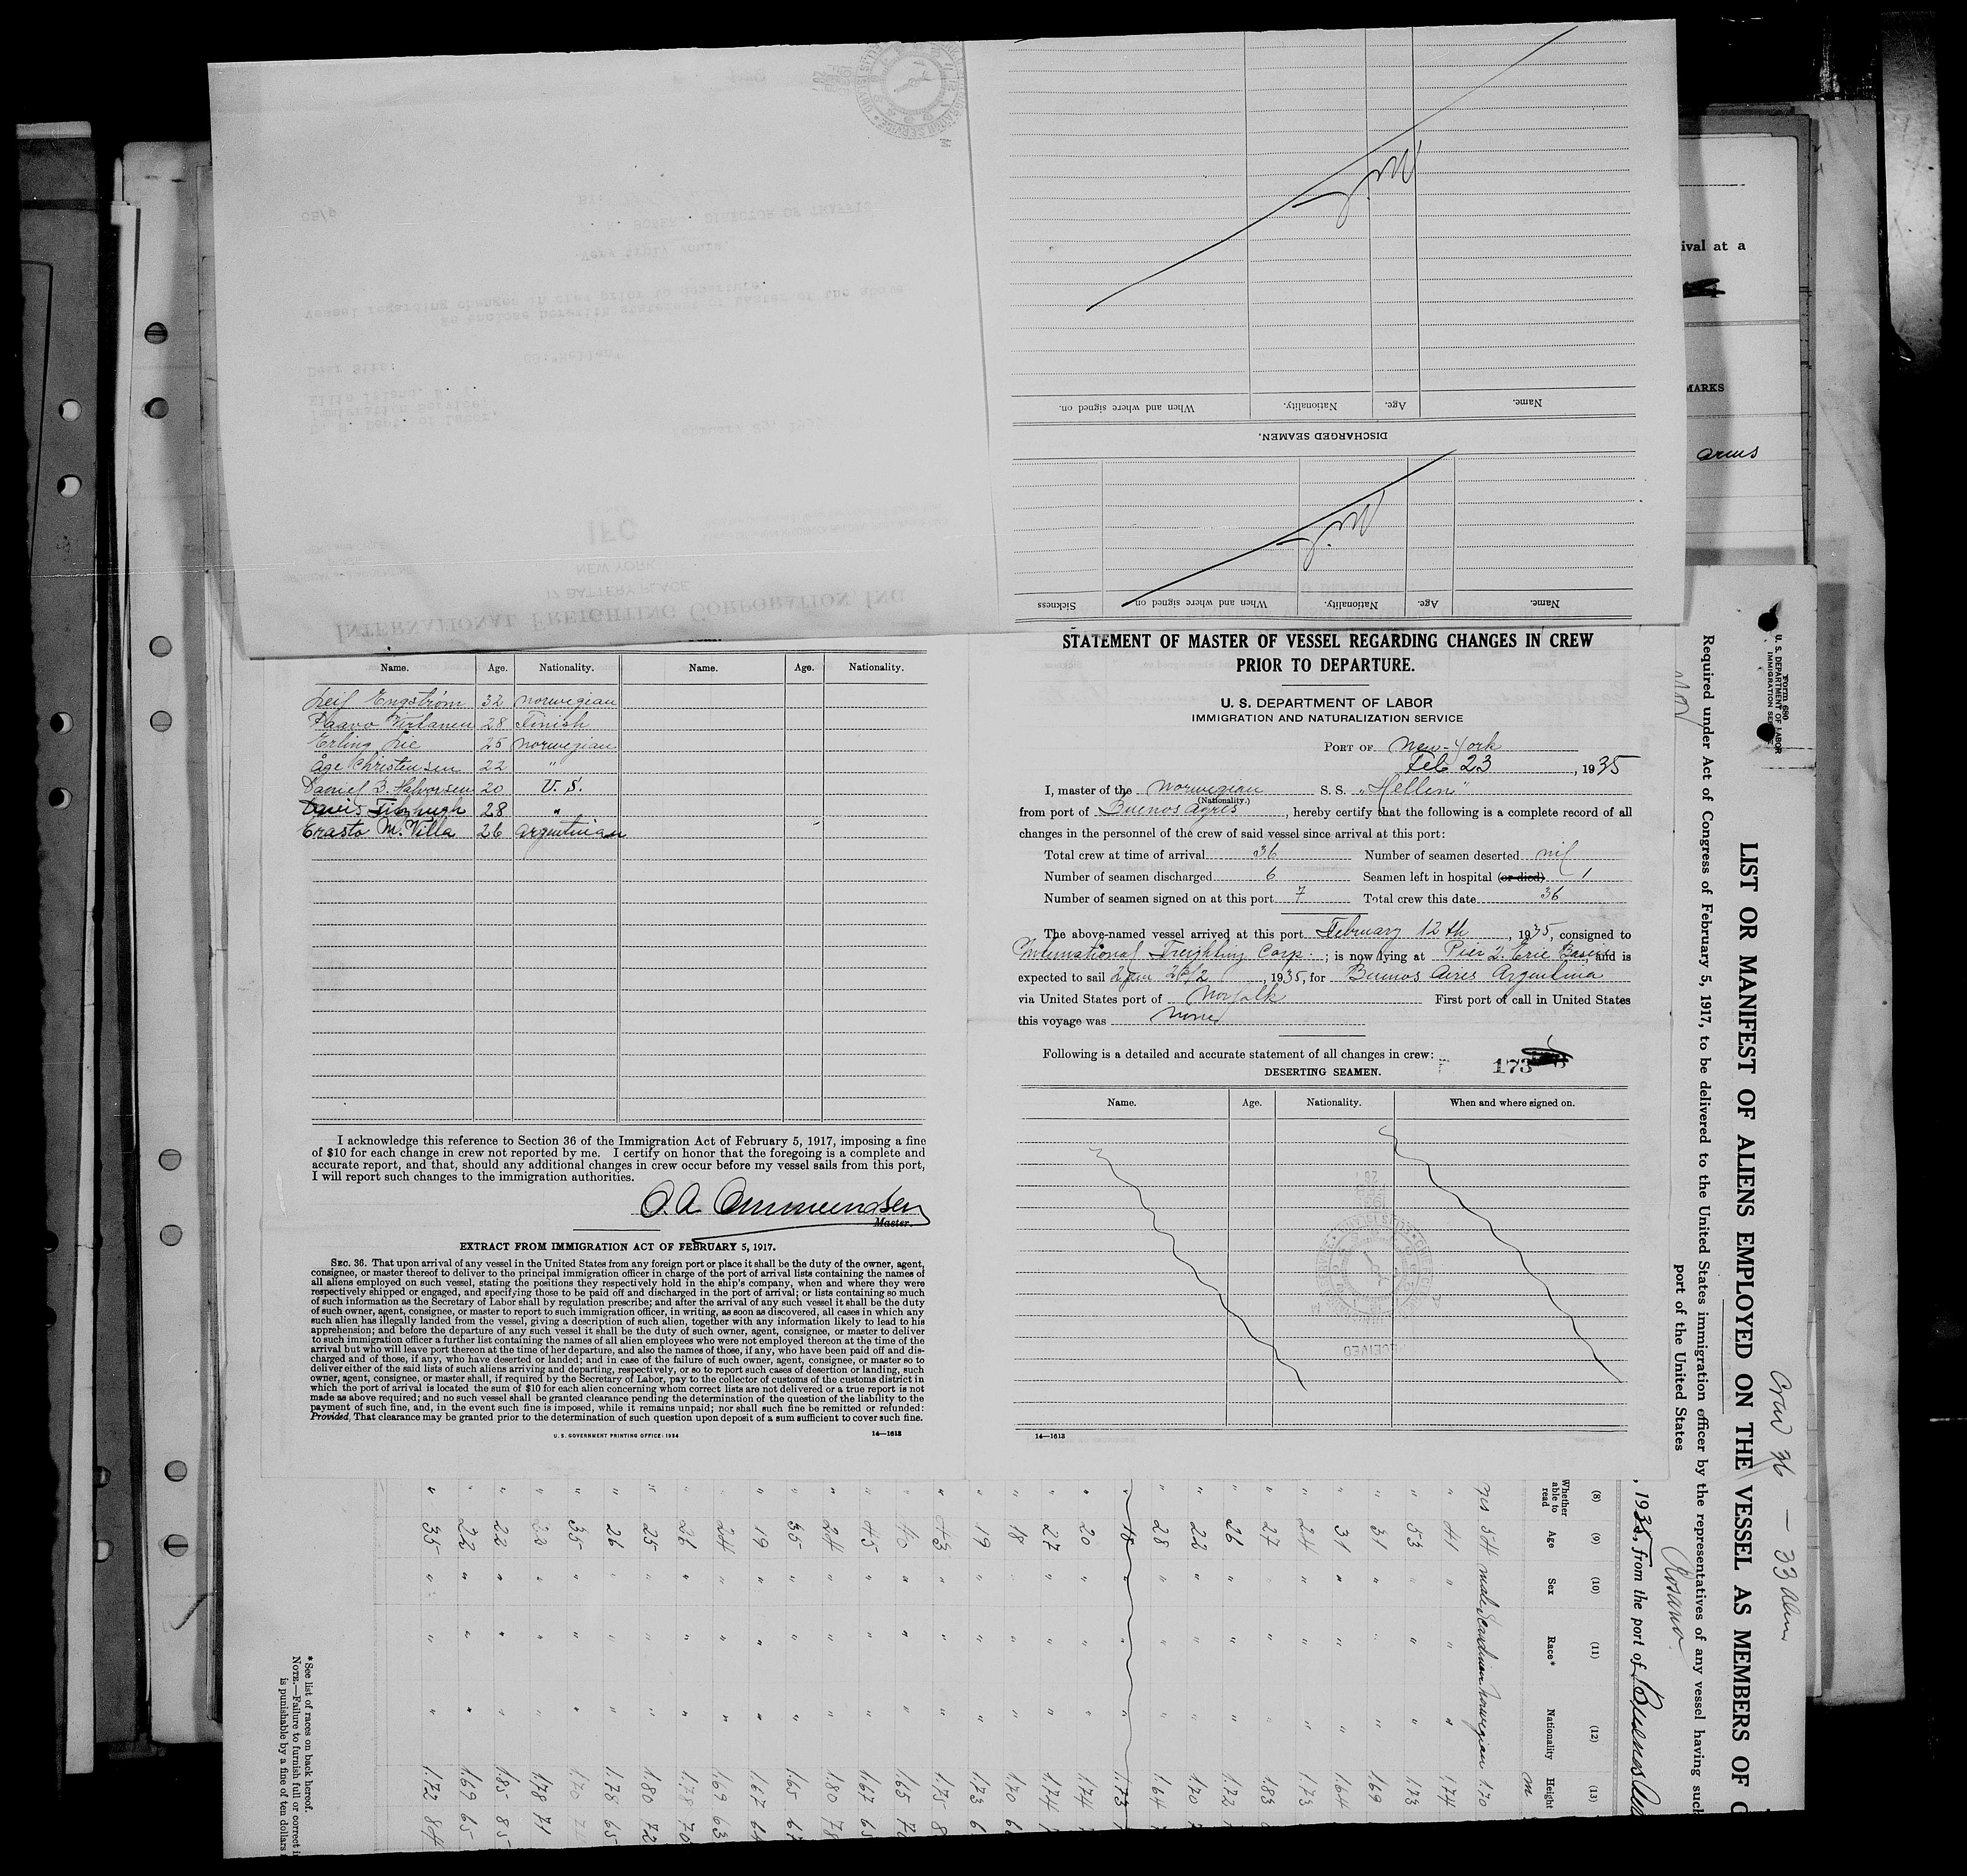 Name. Age. Nationality. Name. Age. Nationality.
Leif Engström 32 norwegian
Paavo Virtanen 28 Finish
Erling Lie 25 norwegian
Åge Christensen 22 "
Daniel B. Halvorsen 20 U. S.
Davis Fitzhugh 28 "
Erasto M. Villa 26 argentinian
I acknowledge this reference to Section 36 of the Immigration Act of February 5, 1917, imposing a fine
of $10 for each change in crew not reported by me. I certify on honor that the foregoing is a complete and
accurate report, and that, should any additional changes in crew occur before my vessel sails from this port,
I will report such changes to the immigration authorities.
Master.
EXTRACT FROM IMMIGRATION ACT OF FEBRUARY 5, 1917.
SEC. 36. That upon arrival of any vessel in the United States from any foreign port or place it shall be the duty of the owner, agent,
consignee, or master thereof to deliver to the principal immigration officer in charge of the port of arrival lists containing the names of
all aliens employed on such vessel, stating the positions they respectively hold in the ship's company, when and where they were
respectively shipped or engaged, and specifying those to be paid off and discharged in the port of arrival; or lists containing so much
of such information as the Secretary of Labor shall by regulation prescribe; and after the arrival of any such vessel it shall be the duty
of such owner, agent, consignee, or master to report to such immigration officer, in writing, as soon as discovered, all cases in which any
such alien has illegally landed from the vessel, giving a description of such alien, together with any information likely to lead to his
apprehension; and before the departure of any such vessel it shall be the duty of such owner, agent, consignee, or master to deliver
to such immigration officer a further list containing the names of all alien employees who were not employed thereon at the time of the
arrival but who will leave port thereon at the time of her departure, and also the names of those, if any, who have been paid off and dis-
charged and of those, if any, who have deserted or landed; and in case of the failure of such owner, agent, consignee, or master so to
deliver either of the said lists of such aliens arriving and departing, respectively, or so to report such cases of desertion or landing, such
owner, agent, consignee, or master shall, if required by the Secretary of Labor, pay to the collector of customs of the customs district in
which the port of arrival is located the sum of $10 for each alien concerning whom correct lists are not delivered or a true report is not
made as above required; and no such vessel shall be granted clearance pending the determination of the question of the liability to the
payment of such fine, and, in the event such fine is imposed, while it remains unpaid; nor shall such fine be remitted or refunded:
Provided, That clearance may be granted prior to the determination of such question upon deposit of a sum sufficient to cover such fine.
U. S. GOVERNMENT PRINTING OFFICE: 1934 14—1613
Name. Age. Nationality. When and where signed on.
DISCHARGED SEAMEN.
Nil
Name. Age. Nationality. When and where signed on Sickness
Nil
STATEMENT OF MASTER OF VESSEL REGARDING CHANGES IN CREW
PRIOR TO DEPARTURE.
U. S. DEPARTMENT OF LABOR
IMMIGRATION AND NATURALIZATION SERVICE
PORT OF New-York
Feb 23, 1935
I, master of the Norwegian S. S. "Hellen"
(Nationality.)
from port of Buenos Ayres, hereby certify that the following is a complete record of all
changes in the personnel of the crew of said vessel since arrival at this port:
Total crew at time of arrival 36 Number of seamen deserted nil
Number of seamen discharged 6 Seamen left in hospital (or died) 1
Number of seamen signed on at this port 7 Total crew this date 36
The above-named vessel arrived at this port February 12th, 1935, consigned to
International Freighting Corp.; is now lying at Pier 2. Erie Basin, and is
expected to sail 23/2, 1935, for Buenos Aires Argentina
via United States port of Norfolk First port of call in United States
this voyage was None
Following is a detailed and accurate statement of all changes in crew:
173
DESERTING SEAMEN.
Name. Age. Nationality. When and where signed on.
RECEIVED
14—1613
ival at a
MARKS
arms
Form 680
U. S. DEPARTMENT OF LABOR
IMMIGRATION SERVICE
Crew 36 — 33 Aliens
LIST OR MANIFEST OF ALIENS EMPLOYED ON THE VESSEL AS MEMBERS OF C
Required under Act of Congress of February 5, 1917, to be delivered to the United States immigration officer by the representatives of any vessel having such
port of the United States
Rosario
, 1935, from the port of Buenos
(8) (9) (10) (11) (12) (13)
Whether able to read Age Sex Race* Nationality Height
m
yes 54 male Scandinav Norwegian 1.70
" 41 " " " 1.74
" 53 " " " 1.73
" 31 " " " 1.69
" 31 " " " 1.64
" 24 " " " 1.73
" 27 " " " 1.83
" 26 " " " 1.72
" 22 " " " 1.70
" 28 " " " 1.64
" 18 " " " 1.73
" 20 " " " 1.74
" 27 " " " 1.74
" 18 " " " 1.70
" 19 " " " 1.73
" 43 " " " 1.75
" 40 " " " 1.65
" 45 " " " 1.67
" 24 " " " 1.80
" 35 " " " 1.65
" 19 " " " 1.67
" 24 " " " 1.69 63
" 26 " " " 1.78 70
" 25 " " " 1.80 72
" 26 " " " 1.78 65
" 35 " " " 1.70
" 22 " " " 1.78 71
" 22 " " " 1.85 85
" 22 " " " 1.69 65
" 35 " " " 1.72 84
* See list of races on back hereof.
NOTE.—Failure to furnish full or correct i
is punishable by a fine of ten dollars
INTERNATIONAL FREIGHTING CORPORATION, INC
17 BATTERY PLACE
NEW YORK
IFC
U. S. Dept. of Labor,
Immigration Service,
Ellis Island, N. Y.
Dear Sirs:
SS:"Hellen"
We enclose herewith statement of master of the above
vessel regarding changes in crew prior to departure.
Very truly yours,
DIRECTOR OF TRAFFIC
BY: